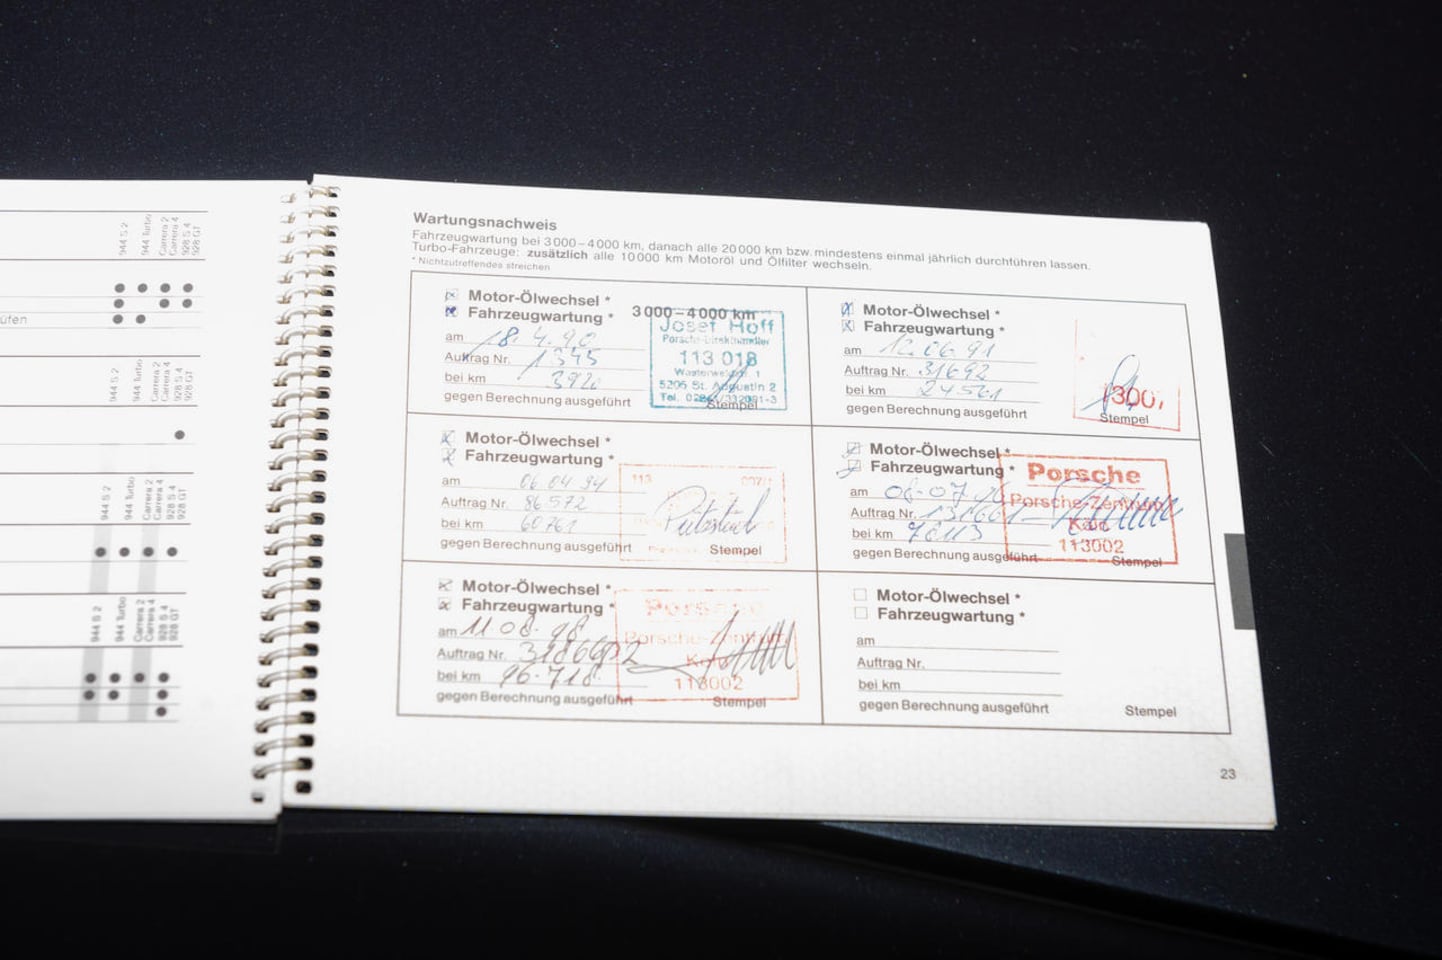 944 S 2
944 Turbo
Carrera 2
Carrera 4
928 S 4
928 GT
üfen
944 S 2
944 Turbo
Carrera 2
Carrera 4
928 S 4
928 GT
944 S 2
944 Turbo
Carrera 2
Carrera 4
928 S 4
928 GT
944 S 2
944 Turbo
Carrera 2
Carrera 4
928 S 4
928 GT
Wartungsnachweis
Fahrzeugwartung bei 3000–4000 km, danach alle 20000 km bzw. mindestens einmal jährlich durchführen lassen.
Turbo-Fahrzeuge: zusätzlich alle 10000 km Motoröl und Ölfilter wechseln.
* Nichtzutreffendes streichen
Motor-Ölwechsel *
Fahrzeugwartung * 3000–4000 km
am 18.4.90
Auftrag Nr. 1345
bei km 3920
gegen Berechnung ausgeführt
Josef Hoff
Porsche-Direkthändler
113 018
5205 St. Augustin 2
Stempel
Motor-Ölwechsel *
Fahrzeugwartung *
am 12.06.91
Auftrag Nr. 31692
bei km
gegen Berechnung ausgeführt
Stempel
Motor-Ölwechsel *
Fahrzeugwartung *
am 06.04.94
Auftrag Nr. 86572
bei km 60761
gegen Berechnung ausgeführt
113
Stempel
Motor-Ölwechsel *
Fahrzeugwartung *
am
Auftrag Nr.
bei km
gegen Berechnung ausgeführt
Porsche
Porsche-Zentrum
113002
Stempel
Motor-Ölwechsel *
Fahrzeugwartung *
am 11.08.98
Auftrag Nr.
bei km 96.718
gegen Berechnung ausgeführt
Porsche
Porsche-Zentrum
113002
Stempel
Motor-Ölwechsel *
Fahrzeugwartung *
am
Auftrag Nr.
bei km
gegen Berechnung ausgeführt
Stempel
23